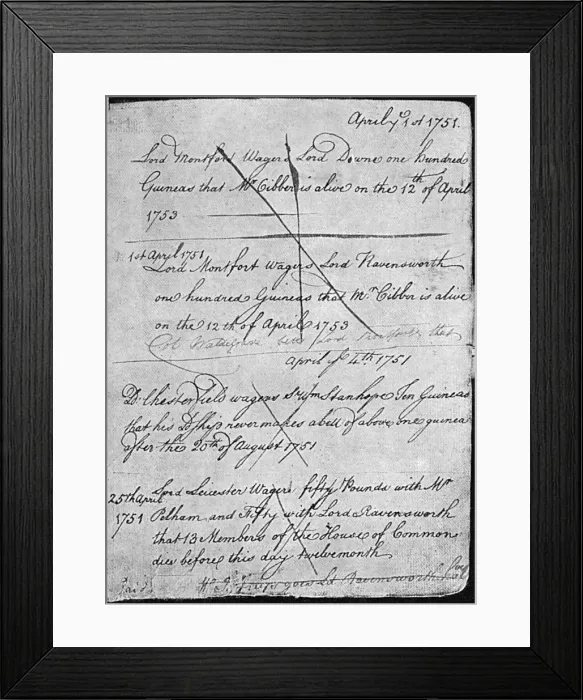 April yᵉ 1st 1751.
Lord Montfort Wagers Lord Downe one hundred
Guineas that Mʳ Cibber is alive on the 12th of April
1753
1st April 1751
Lord Montfort Wagers Lord Ravensworth
one hundred Guineas that Mʳ Cibber is alive
on the 12th of April 1753
Lord that
April yᵉ 4th 1751
Lᵈ Chesterfield wagers Sʳ Wm Stanhope Ten Guineas
that his Lᵈship never makes a bett of above one guinea
after the 20th of August 1751
25th April
1751
Lord Leicester Wagers fifty Pounds with Mʳ
Pelham and Fifty with Lord Ravensworth
that 13 Members of the House of Commons
dies before this day twelvemonth
Paid
goes Ld Ravensworth